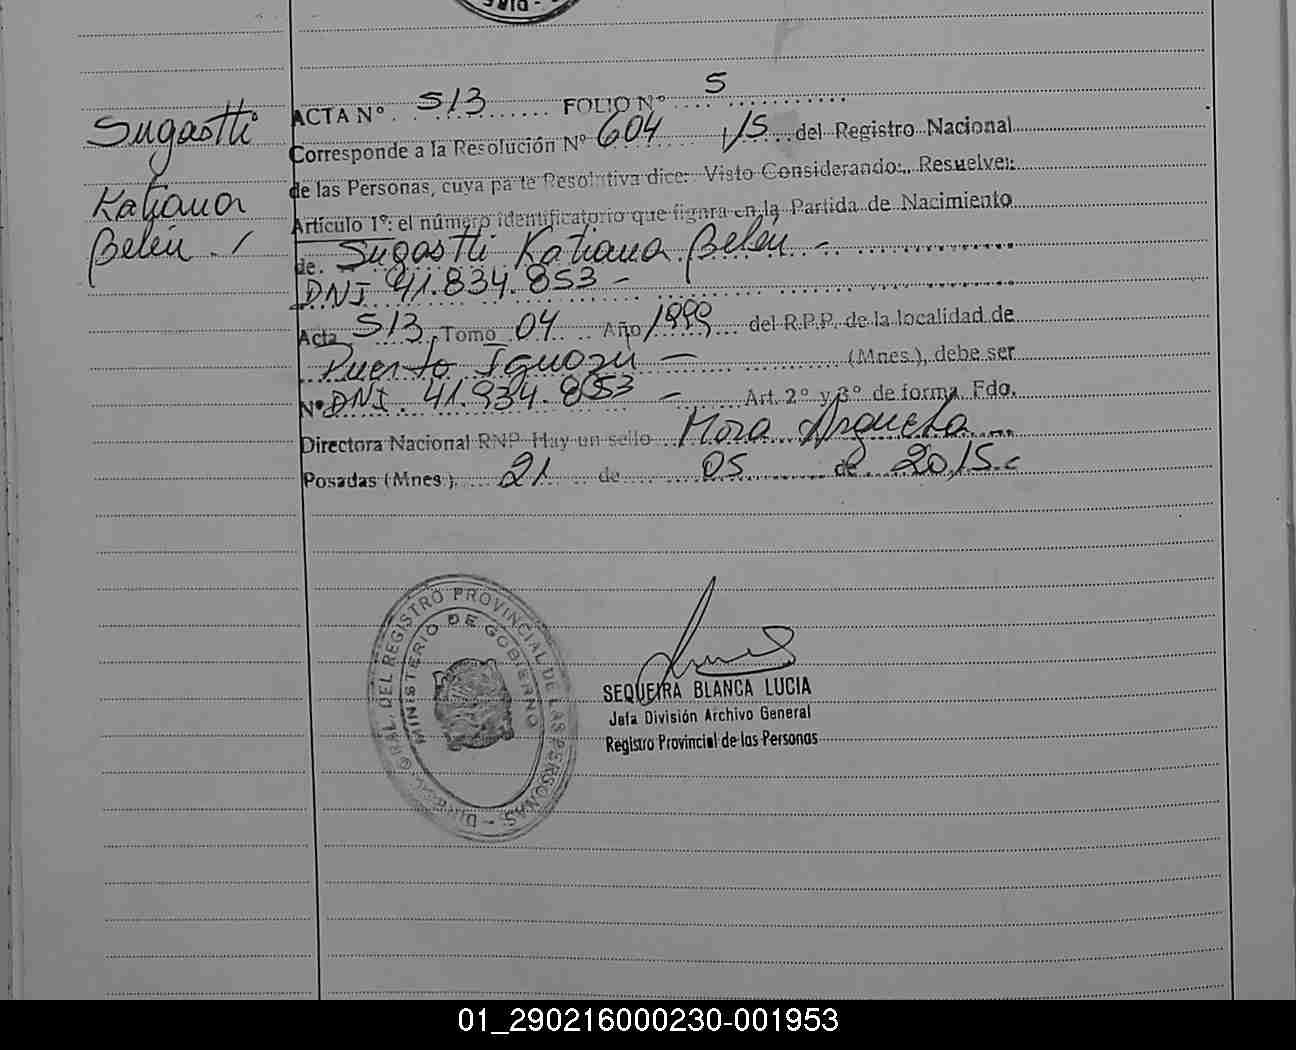 Sugastti
Katiana
Belén. /
ACTA Nº. 513 FOLIO Nº 5
Corresponde a la Resolución Nº 604 /15 del Registro Nacional
de las Personas, cuya parte Resolutiva dice: Visto Considerando:. Resuelve:
Artículo 1º: el número identificatorio que figura en la Partida de Nacimiento
de. Sugastti Katiana Belén -
DNI 41.834.853 -
Acta 513 Tomo 04 Año 1999 del R.P.P. de la localidad de
Puerto Iguazú - (Mnes.), debe ser
Nº DNI. 41.934.853 - Art. 2º y 3º de forma. Fdo.
Directora Nacional RNP. Hay un sello Mora Arqueta
Posadas (Mnes.) 21 de 05 de 2015.
DIREC. GRAL. DEL REGISTRO PROVINCIAL DE LAS PERSONAS -
MINISTERIO DE GOBIERNO
SEQUEIRA BLANCA LUCIA
Jefa División Archivo General
Registro Provincial de las Personas
01_290216000230-001953